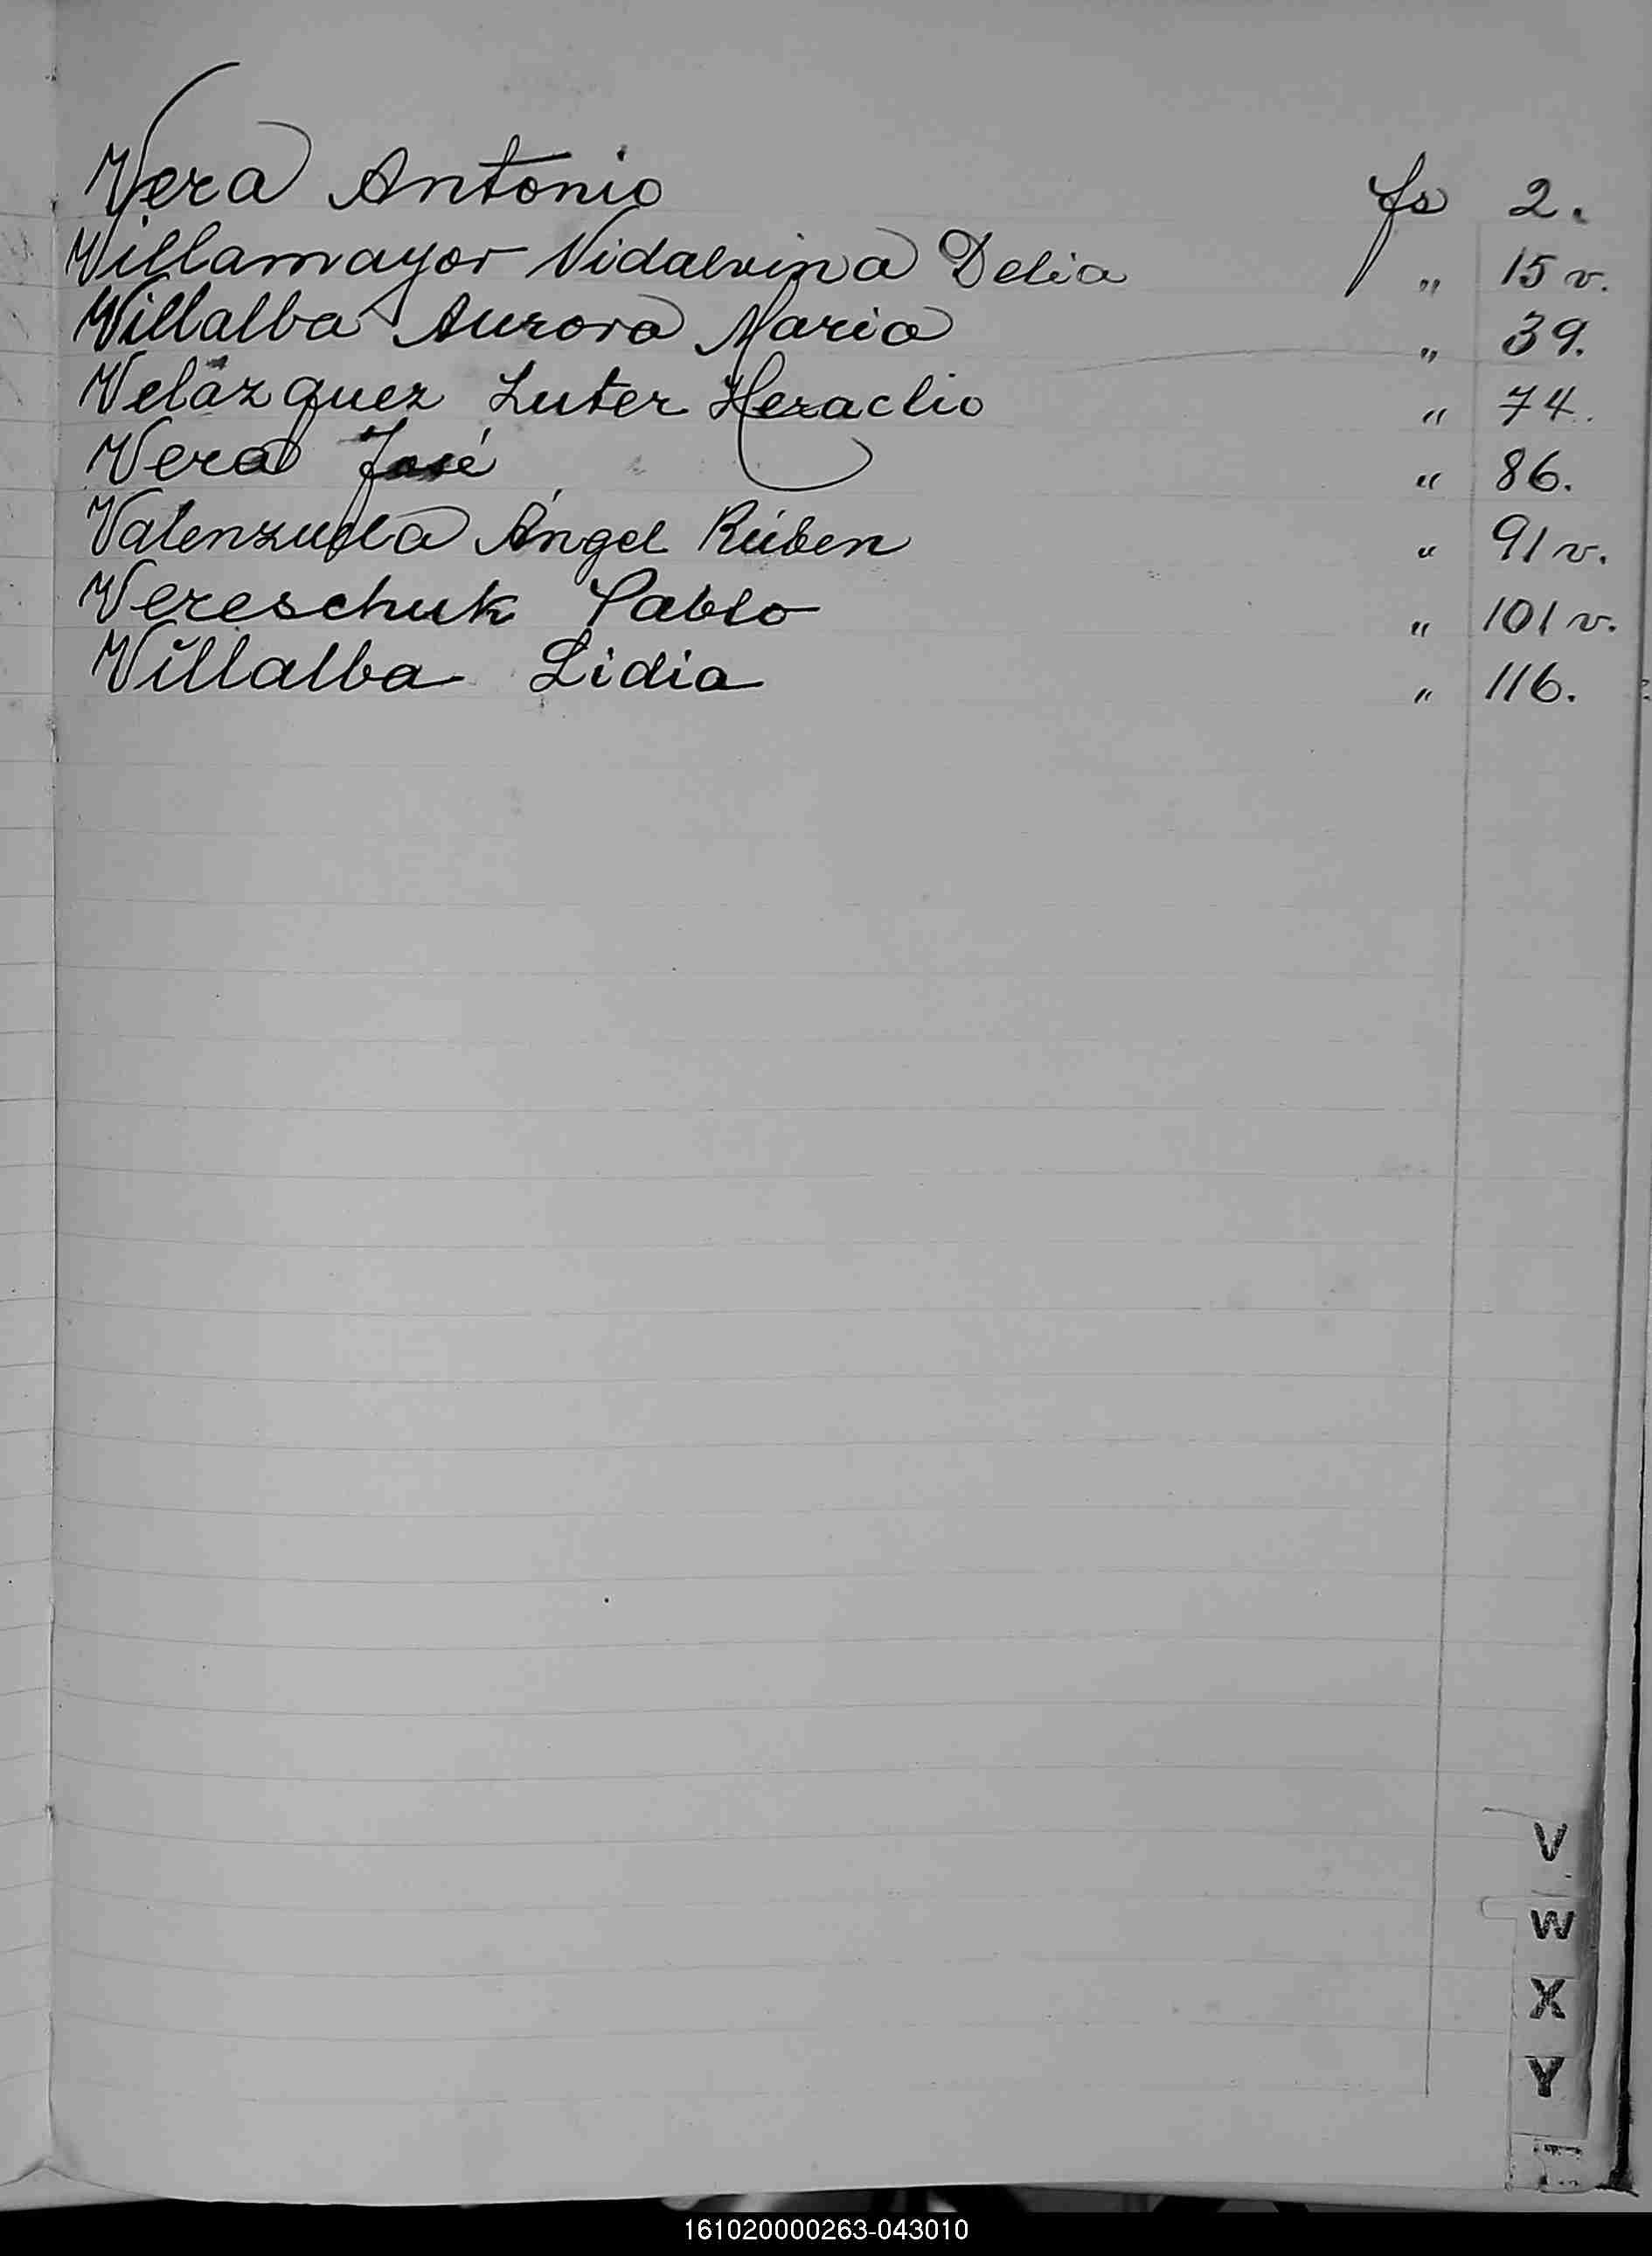 Vera Antonio fs 2.
Villamayor Vidalvina Delia " 15 v.
Villalba Aurora Maria " 39.
Velázquez Luter Heraclio " 74.
Vera José " 86.
Valenzuela Ángel Rúben " 91 v.
Vereschuk Pablo " 101 v.
Villalba Lidia " 116.
V
W
X
Y
161020000263-043010